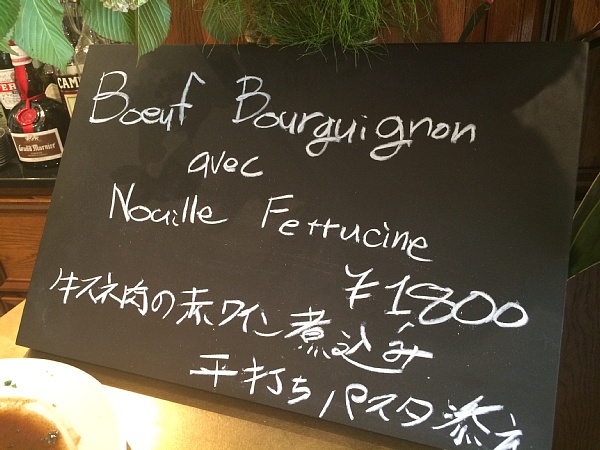 Boeuf Bourguignon
avec
Nouille Fettucine
¥1800
牛スネ肉の赤ワイン煮込み
平打ちパスタ添え
Grand Marnier